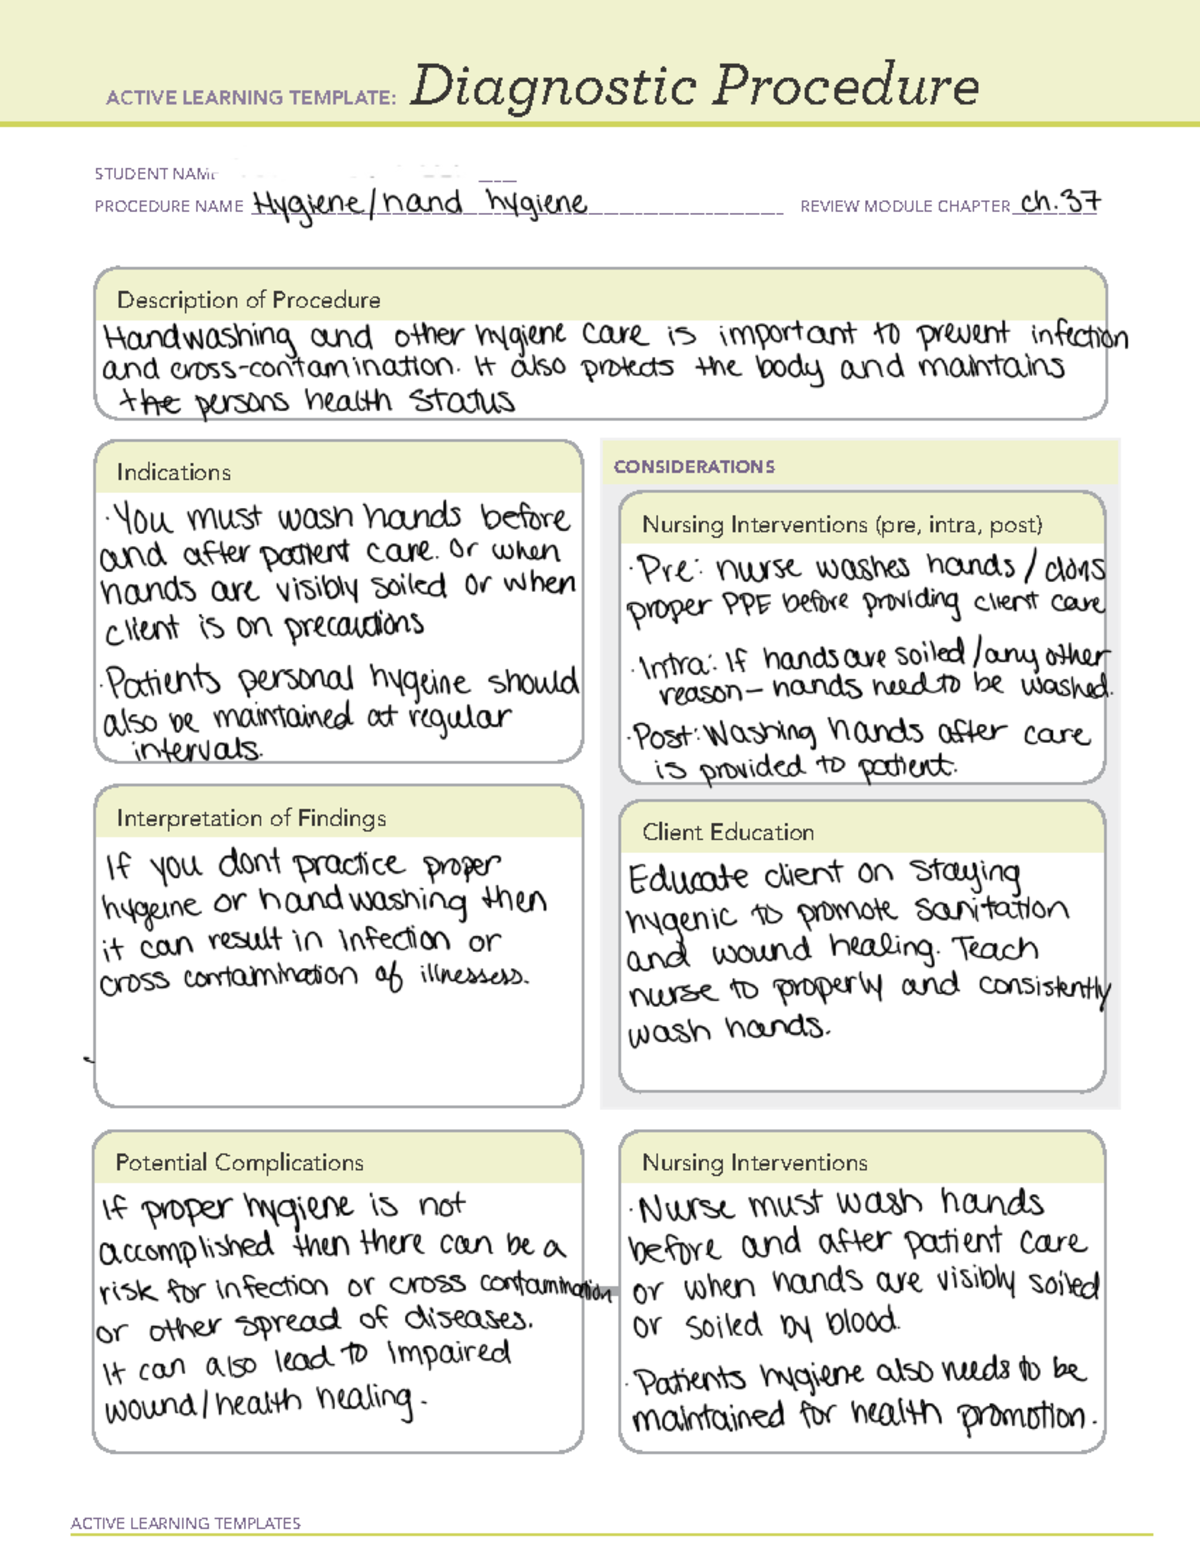 ACTIVE LEARNING TEMPLATE: Diagnostic Procedure
STUDENT NAME
PROCEDURE NAME Hygiene/hand hygiene REVIEW MODULE CHAPTER ch.37
Description of Procedure
Handwashing and other hygiene care is important to prevent infection
and cross-contamination. It also protects the body and maintains
the persons health status
Indications
·You must wash hands before
and after patient care. Or when
hands are visibly soiled or when
client is on precautions
·Patients personal hygeine should
also be maintained at regular
intervals.
CONSIDERATIONS
Nursing Interventions (pre, intra, post)
·Pre: nurse washes hands/dons
proper PPE before providing client care
·Intra: If hands are soiled/any other
reason- hands need to be washed.
·Post: Washing hands after care
is provided to patient.
Interpretation of Findings
If you dont practice proper
hygeine or handwashing then
it can result in infection or
cross contamination of illnessess.
Client Education
Educate client on staying
hygenic to promote sanitation
and wound healing. Teach
nurse to properly and consistently
wash hands.
Potential Complications
If proper hygiene is not
accomplished then there can be a
risk for infection or cross contamination
or other spread of diseases.
It can also lead to impaired
wound/health healing.
Nursing Interventions
·Nurse must wash hands
before and after patient care
or when hands are visibly soiled
or soiled by blood.
·Patients hygiene also needs to be
maintained for health promotion.
ACTIVE LEARNING TEMPLATES